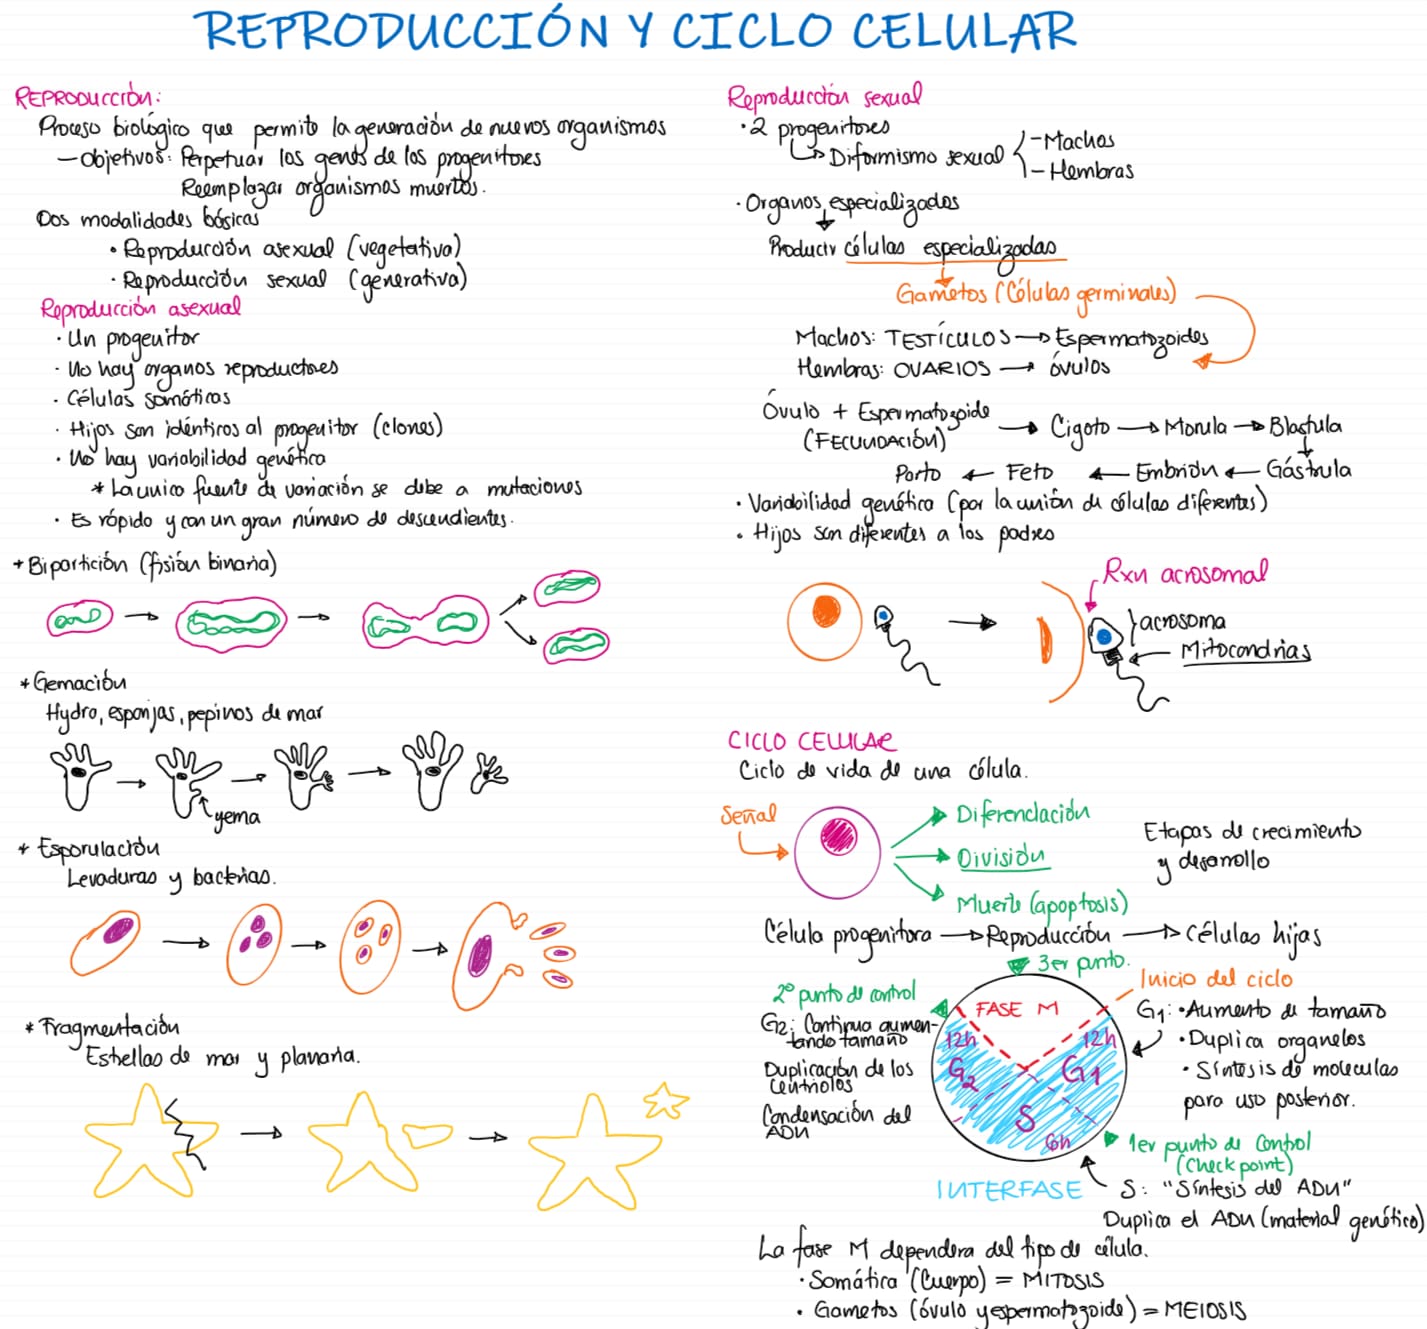 REPRODUCCIÓN Y CICLO CELULAR
REPRODUCCIÓN:
Proceso biológico que permite la generación de nuevos organismos
– Objetivos: Perpetuar los genes de los progenitores
Reemplazar organismos muertos.
Dos modalidades básicas
• Reproducción asexual (vegetativa)
• Reproducción sexual (generativa)
Reproducción asexual
• Un progenitor
• No hay organos reproductores
• Células somáticas
• Hijos son idénticos al progenitor (clones)
• No hay variabilidad genética
* La unica fuente de variación se debe a mutaciones
• Es rápido y con un gran número de descendientes.
* Bipartición (fisión binaria)
* Gemación
Hydra, esponjas, pepinos de mar
yema
* Esporulación
Levaduras y bacterias.
* Fragmentación
Estrellas de mar y planaria.
Reproducción sexual
• 2 progenitores
↳ Diformismo sexual { – Machos
– Hembras
• Organos especializados
↓
Producir células especializadas
↓
Gametos (Células germinales)
Machos: TESTÍCULOS → Espermatozoides
Hembras: OVARIOS → óvulos
Óvulo + Espermatozoide
(FECUNDACIÓN)
→ Cigoto → Morula → Blastula
↓
Parto ← Feto ← Embrión ← Gástrula
• Variabilidad genética (por la unión de células diferentes)
• Hijos son diferentes a los padres
Rxn acrosomal
} acrosoma
← Mitocondrias
CICLO CELULAR
Ciclo de vida de una célula.
Señal
Diferenciación
División
Muerte (apoptosis)
Etapas de crecimiento
y desarrollo
Célula progenitora → Reproducción → Células hijas
3er punto.
2º punto de control
G2: Continua aumen-
tando tamaño
Duplicación de los
Centriolos
Condensación del
ADN
FASE M
12h
G2
12h
G1
S
6h
INTERFASE
Inicio del ciclo
G1: • Aumento de tamaño
• Duplica organelos
• Síntesis de moleculas
para uso posterior.
1er punto de Control
(Check point)
S: "Síntesis del ADN"
Duplica el ADN (material genético)
La fase M dependera del tipo de célula.
• Somática (Cuerpo) = MITOSIS
• Gametos (óvulo y espermatozoide) = MEIOSIS